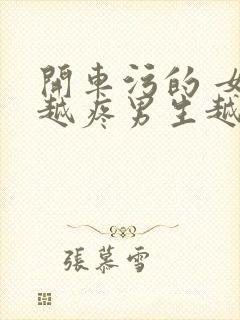 開車污的 女
越疼男生越
張慕雪